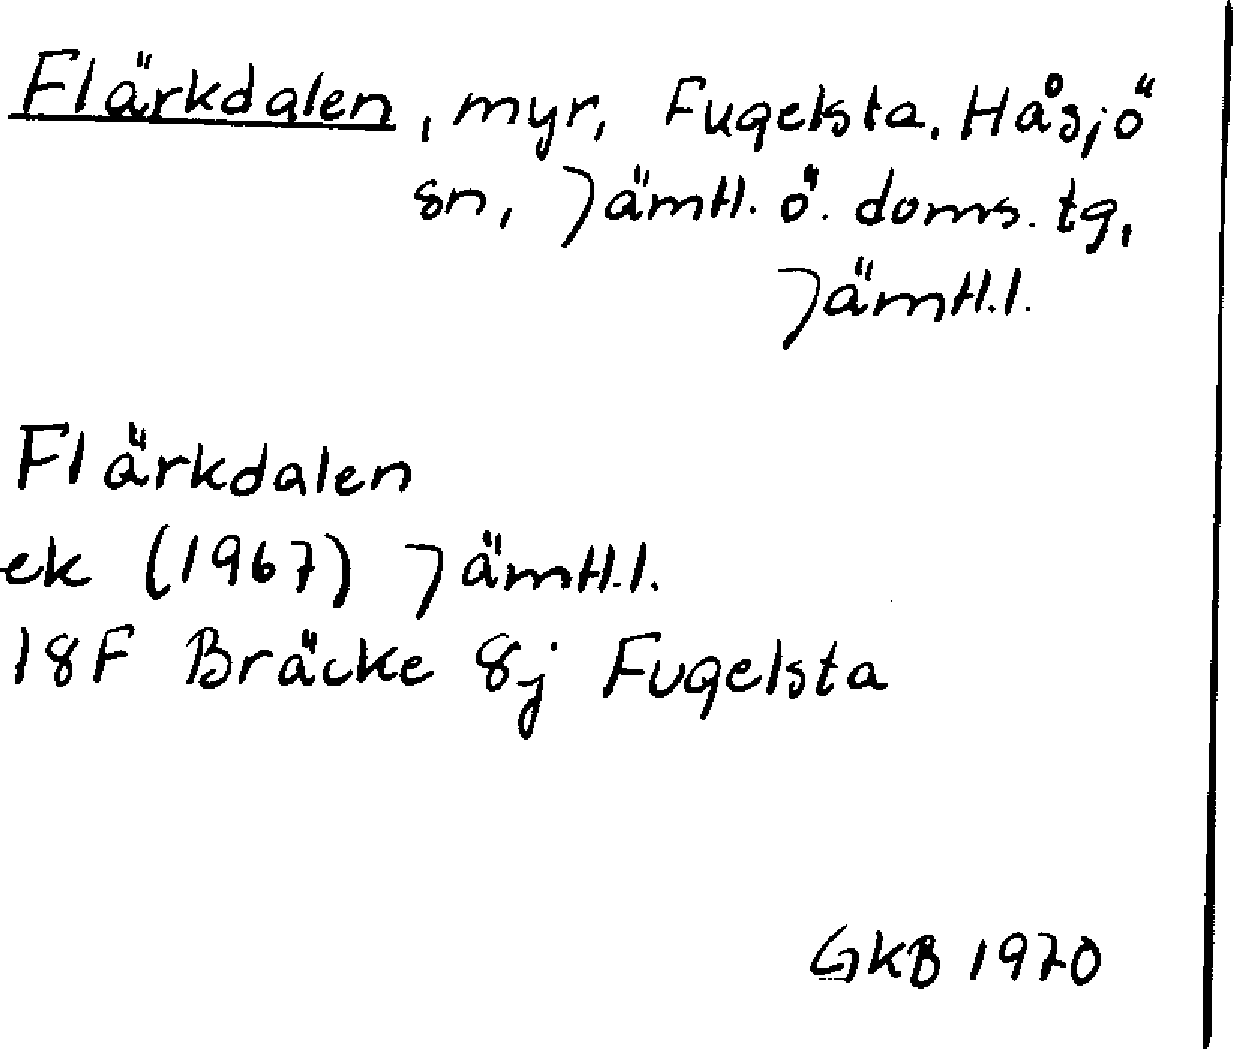 Flärkdalen, myr, Fugelsta, Håsjö
sn, Jämtl. ö. doms. tg,
Jämtl.l.
Flärkdalen
ek (1967) Jämtl.l.
18F Bräcke 8j Fugelsta
GKB 1970